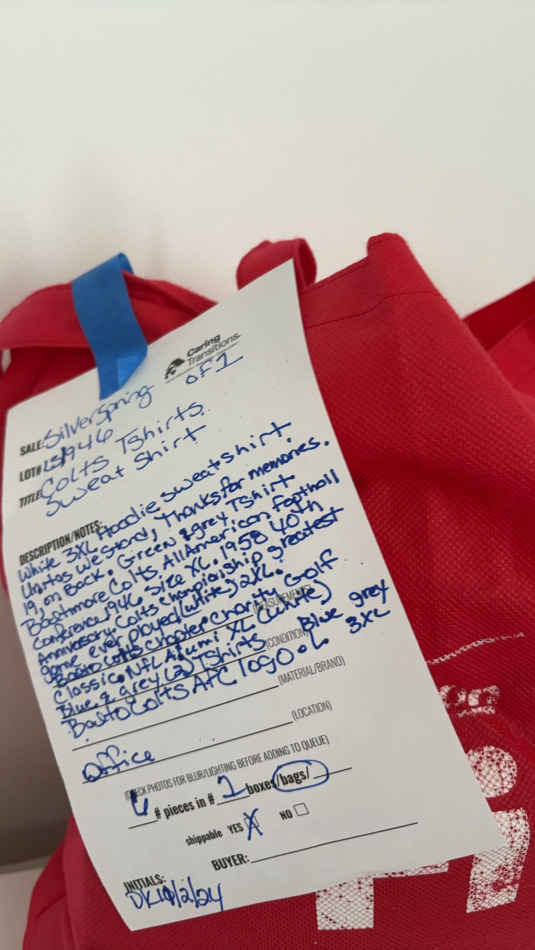 Caring
Transitions.
SALE: Silverspring of 1
LOT# 946
TITLE: Colts Tshirts
Sweat Shirt
DESCRIPTION/NOTES:
White 3XL Hoodie Sweatshirt
Unitas We Stand, Thanks for memories.
19, on Back. Green & grey Tshirt
Colts, All American Football
Conference 1946. Size XL. 1958 40th
Anniversary Colts championship greatest
game ever played (white) 2XL.
(MEASUREMENTS)
Balto Colts Chapter Charity Golf
Classic NFL Alumni XL (white)
(CONDITION)
Blue & grey (2) TShirts Blue grey
Balto Colts AFC logo XL 3XL
(MATERIAL/BRAND)
(LOCATION)
Office
(CHECK PHOTOS FOR BLUR/LIGHTING BEFORE ADDING TO QUEUE)
6 # pieces in # 1 boxes/bags/
shippable YES X NO
BUYER:
INITIALS:
DK 10/2/24